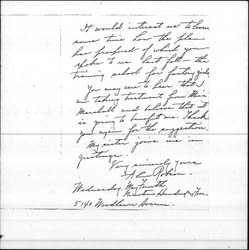 It would interest us to learn
some time how the plan
has prospered of which you
spoke to us last fall - the
training school for factory girls.
You may care to hear that I
am taking treatment from Miss
Marshall and believe that it
is going to benefit me. Thank
you again for the suggestion.
My sister joins me in
greetings.
Very sincerely yours
Wednesday, May Fourth
5140 Woodlawn Avenue.